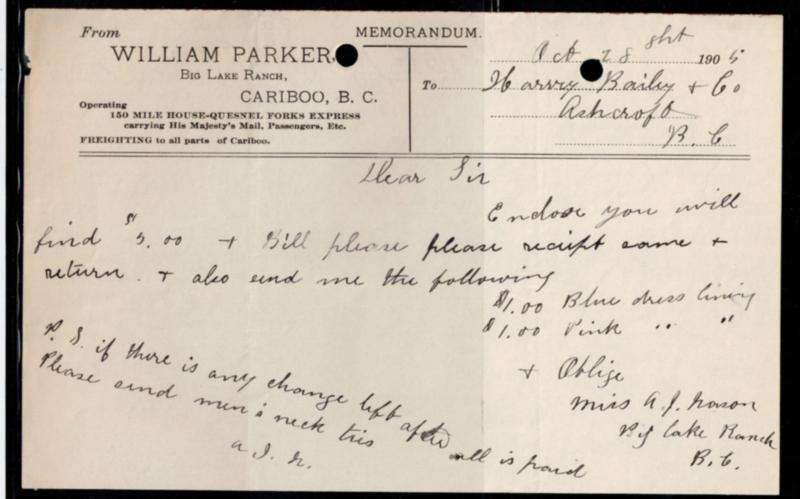 From
MEMORANDUM.
WILLIAM PARKER,
BIG LAKE RANCH,
CARIBOO, B. C.
Operating
150 MILE HOUSE-QUESNEL FORKS EXPRESS
carrying His Majesty's Mail, Passengers, Etc.
FREIGHTING to all parts of Cariboo.
Oct 28 ght 1905
To Harvy Baily & Co
Ashcroft
B. C
Dear Sir
Enclose you will
find $5.00 + Bill please please reciept same +
return. + also send me the following
$1.00 Blue dress lining
$1.00 Pink " "
+ Oblige
Miss A. J. Nason
Big Lake Ranch
B. C.
P. S. if there is any change left after all is paid
Please send men's neck ties
A. J. N.